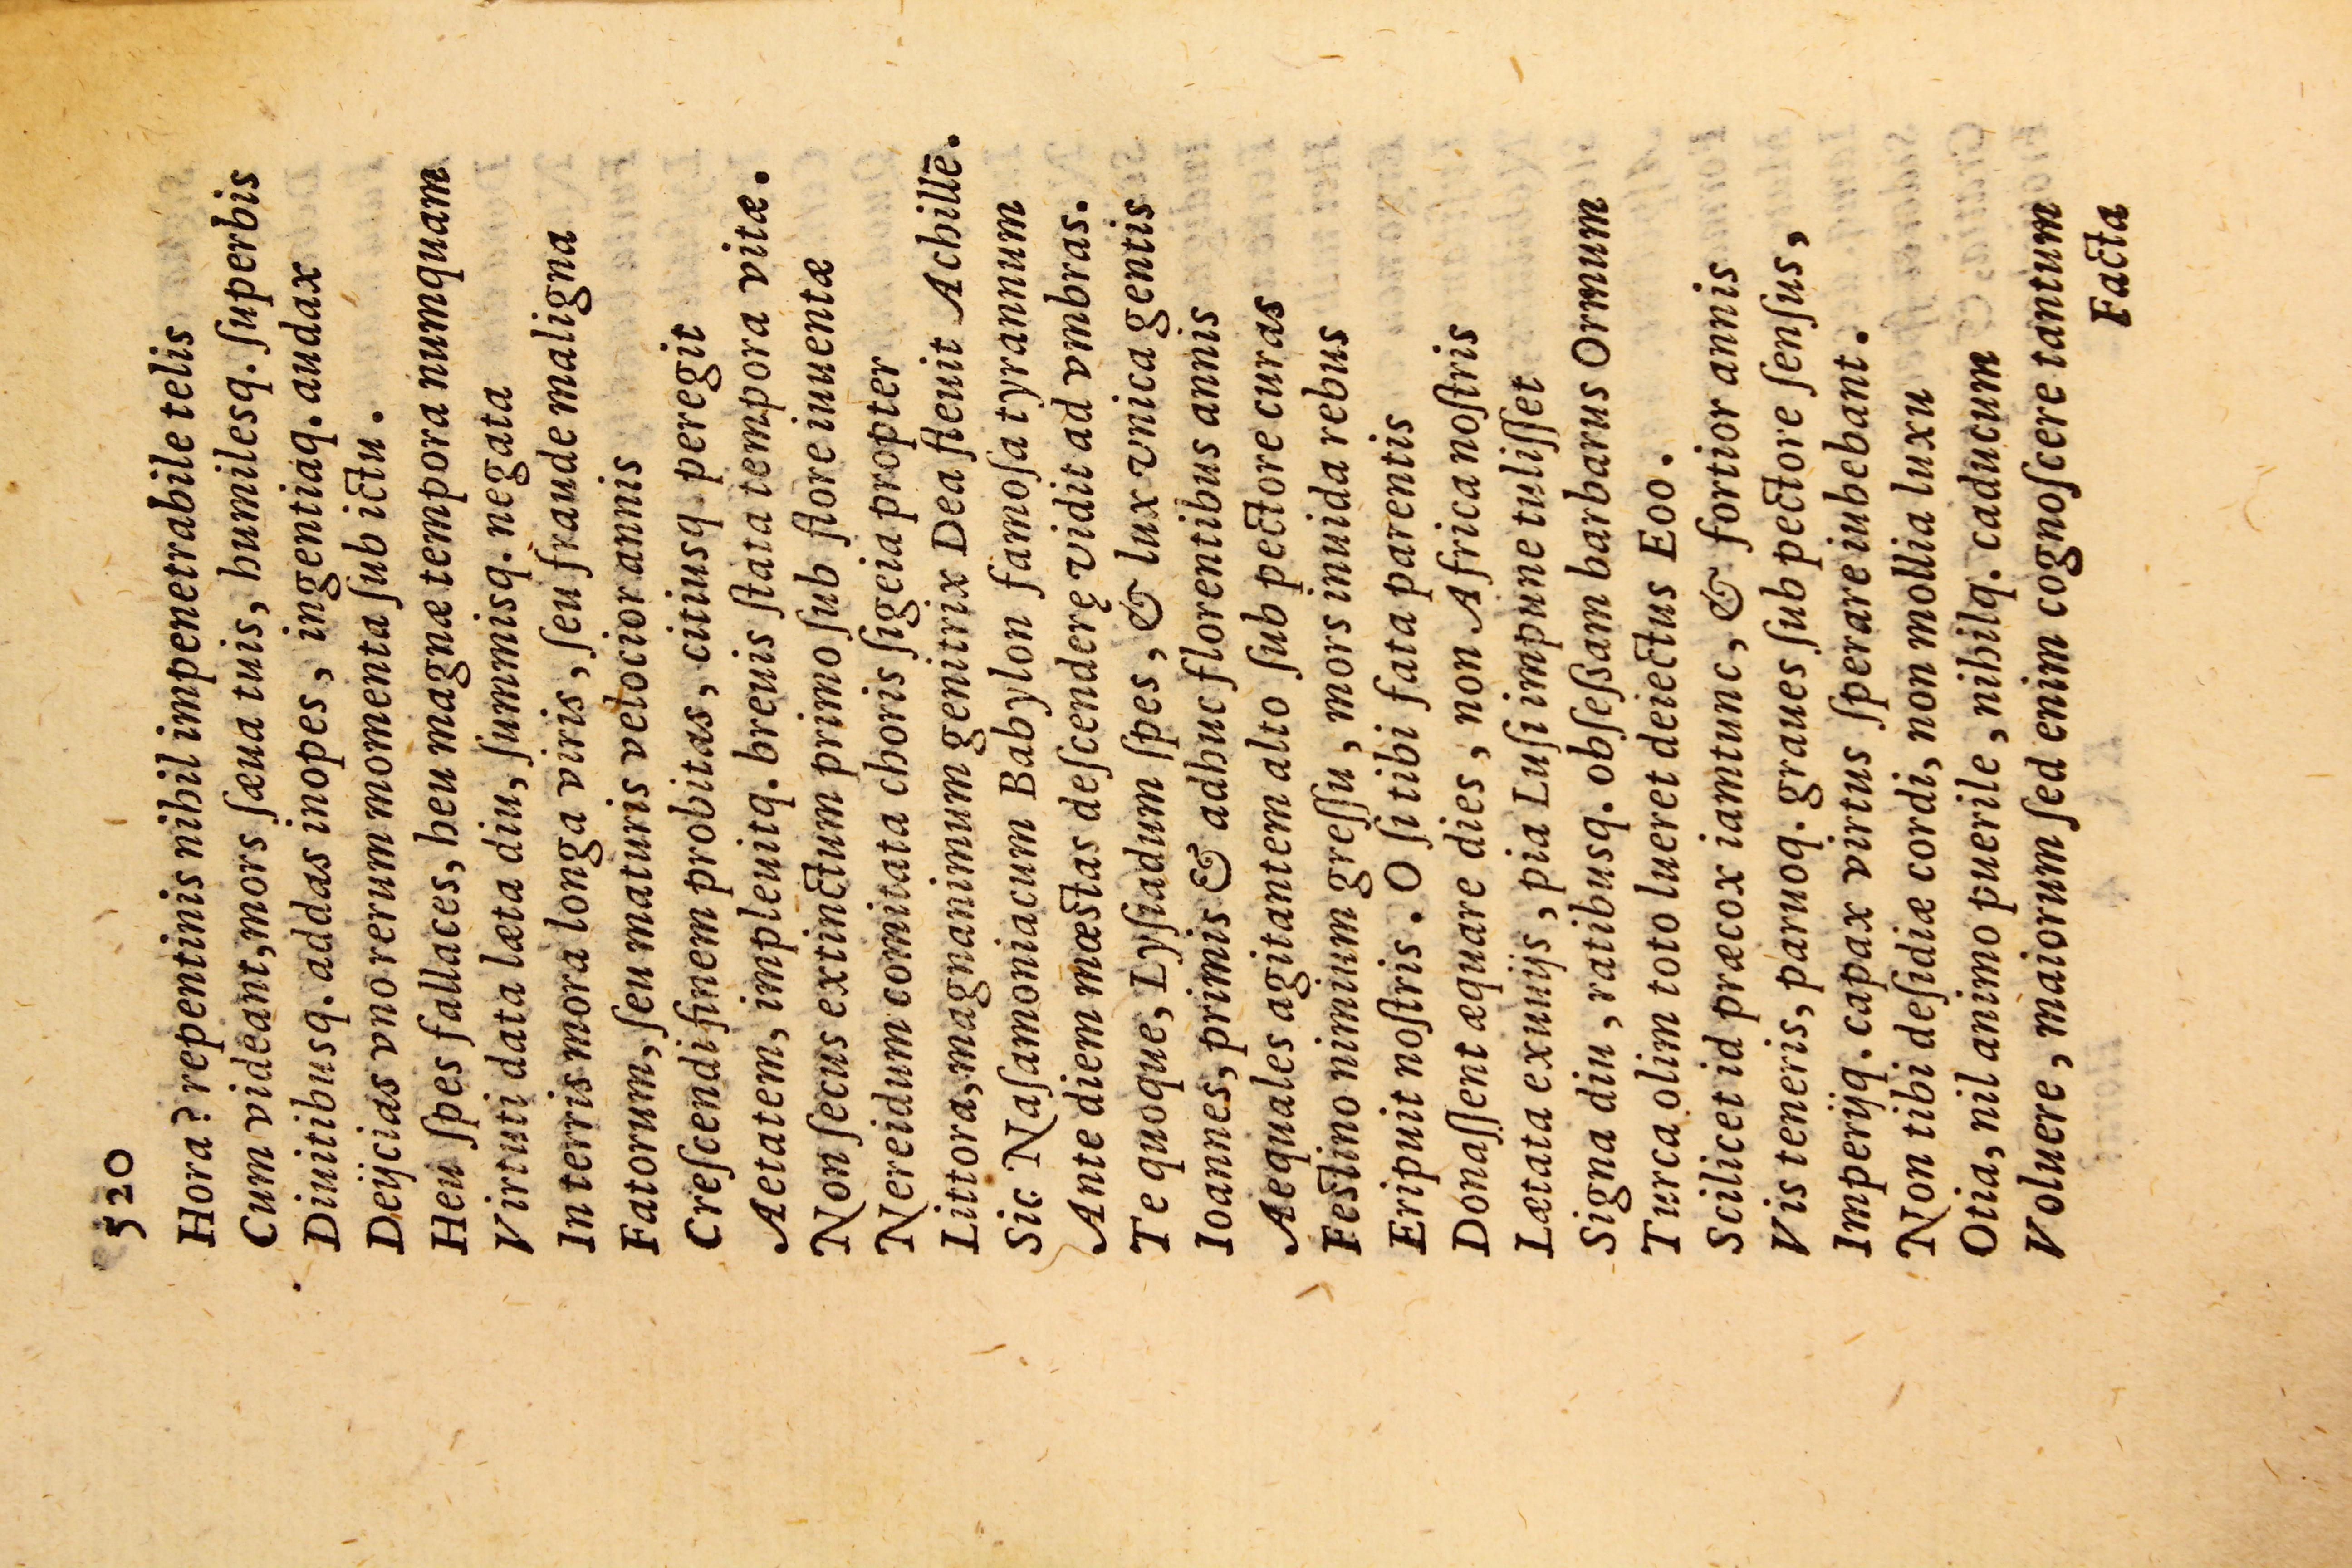 520
Hora? repentinis nihil impenetrabile telis
Cum videant, mors ſæua tuis, humilesq. ſuperbis
Diuitibusq. addas inopes, ingentiaq. audax
Deijcias vno rerum momenta ſub ictu.
Heu ſpes fallaces, heu magnæ tempora numquam
Virtuti data læta diu, ſummisq. negata
In terris mora longa viris, ſeu fraude maligna
Fatorum, ſeu maturis velocior annis
Creſcendi finem probitas, citiusq. peregit
Aetatem, impleuitq. breuis ſtata tempora vitæ.
Non ſecus extinctum primo ſub flore iuuentæ
Nereidum comitata choris ſigeia propter
Littora, magnanimum genitrix Dea fleuit Achillē.
Sic Naſamoniacum Babylon famoſa tyrannum
Ante diem mæstas deſcenderę vidit ad vmbras.
Te quoque, Lyſiadum ſpes, & lux vnica gentis
Ioannes, primis & adhuc florentibus annis
Aequales agitantem alto ſub pectore curas
Festino nimium greſſu, mors inuida rebus
Eripuit noſtris. O ſi tibi fata parentis
Donaſſent æquare dies, non Africa noſtris
Lætata exuuijs, pia Luſi impune tuliſſet
Signa diu, ratibusq. obſeſsam barbarus Ormum
Turca olim toto lueret deiectus Eoo.
Scilicet id præcox iamtunc, & fortior annis
Vis teneris, paruoq. graues ſub pectore ſenſus,
Imperijq. capax virtus ſperare iubebant.
Non tibi deſidiæ cordi, non mollia luxu
Otia, nil animo puerile, nihilq. caducum
Voluere, maiorum ſed enim cognoſcere tantum
Facta